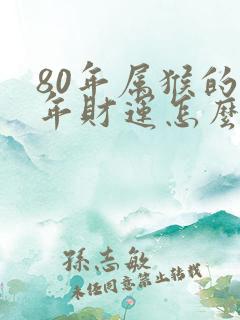 80年属猴的
年财运怎麽
孫志敏
未经同意禁止转载